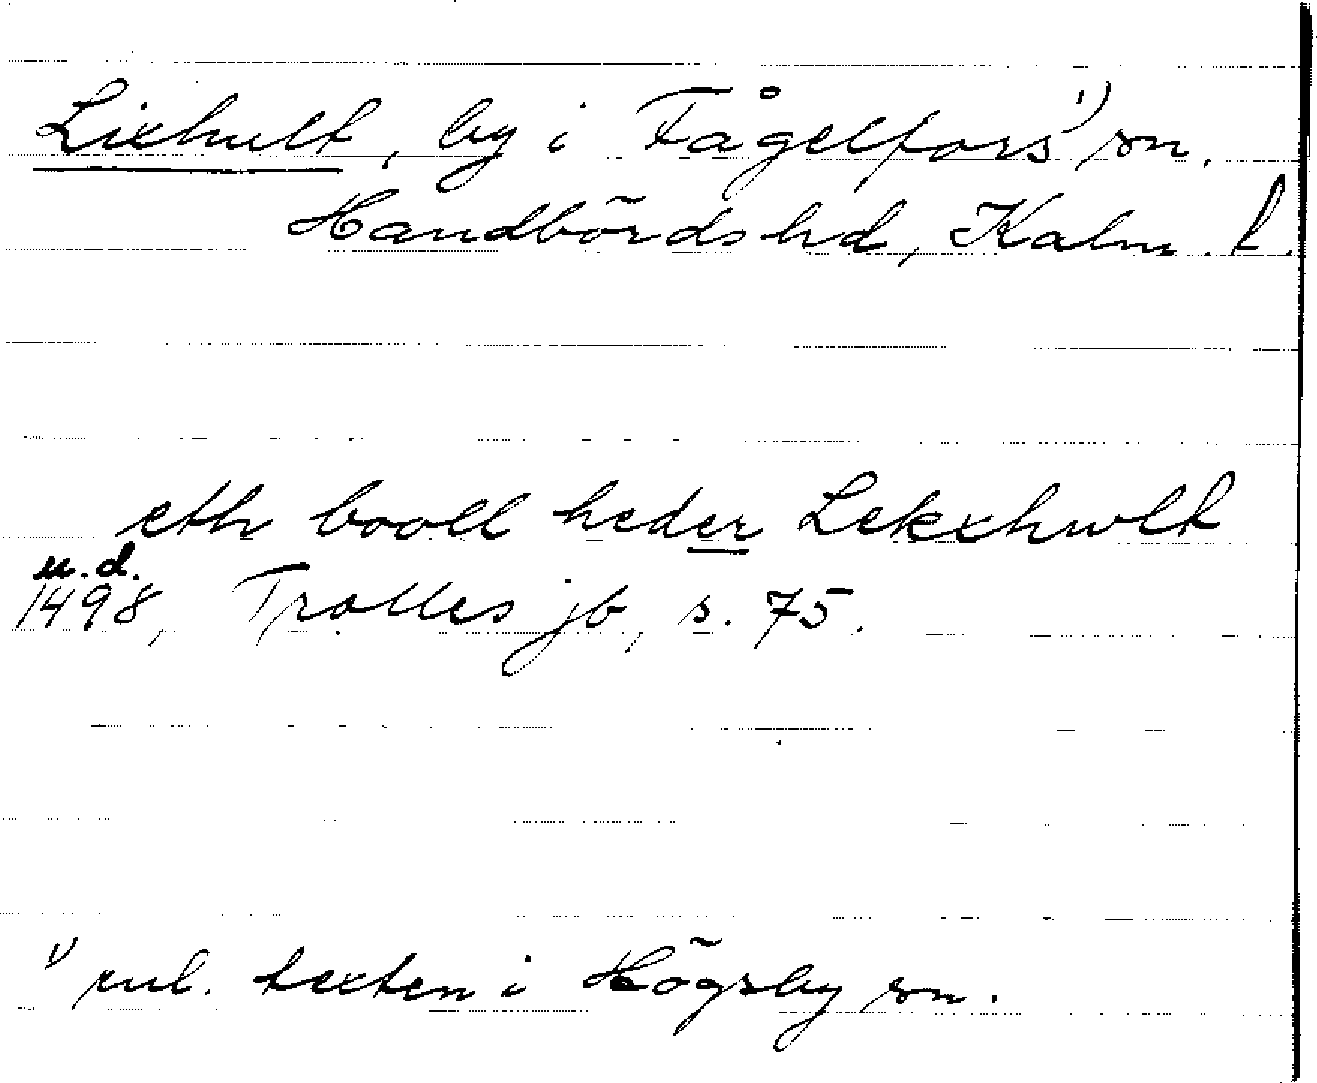 Lixhult, by i Fågelfors ¹⁾ sn.
Handbörds hd, Kalm. l.
eth booll heder Lekxhwlt
u.d.
1498, Trolles jb, s. 75.
¹⁾ enl. texten i Högsby sn.